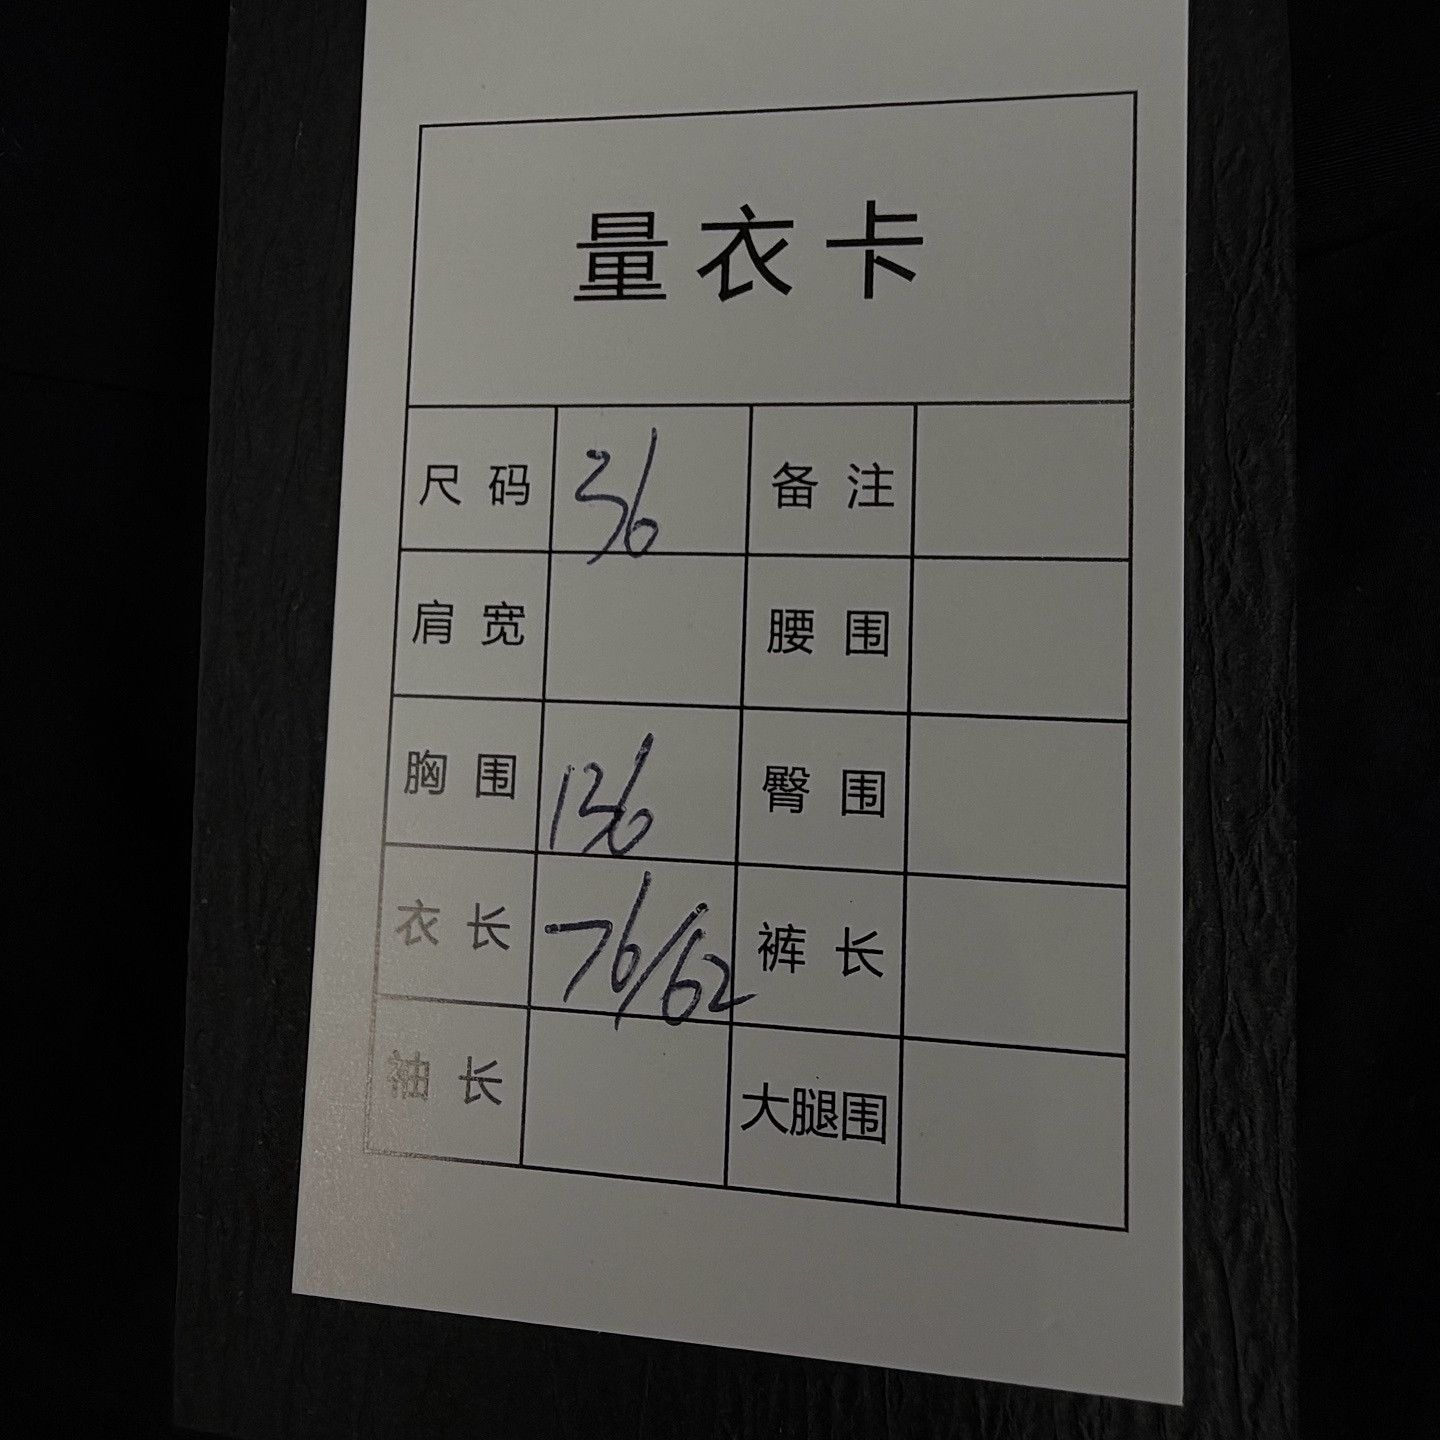 量衣卡
尺码 36 备注
肩宽 腰围
胸围 136 臀围
衣长 76/62 裤长
袖长 大腿围